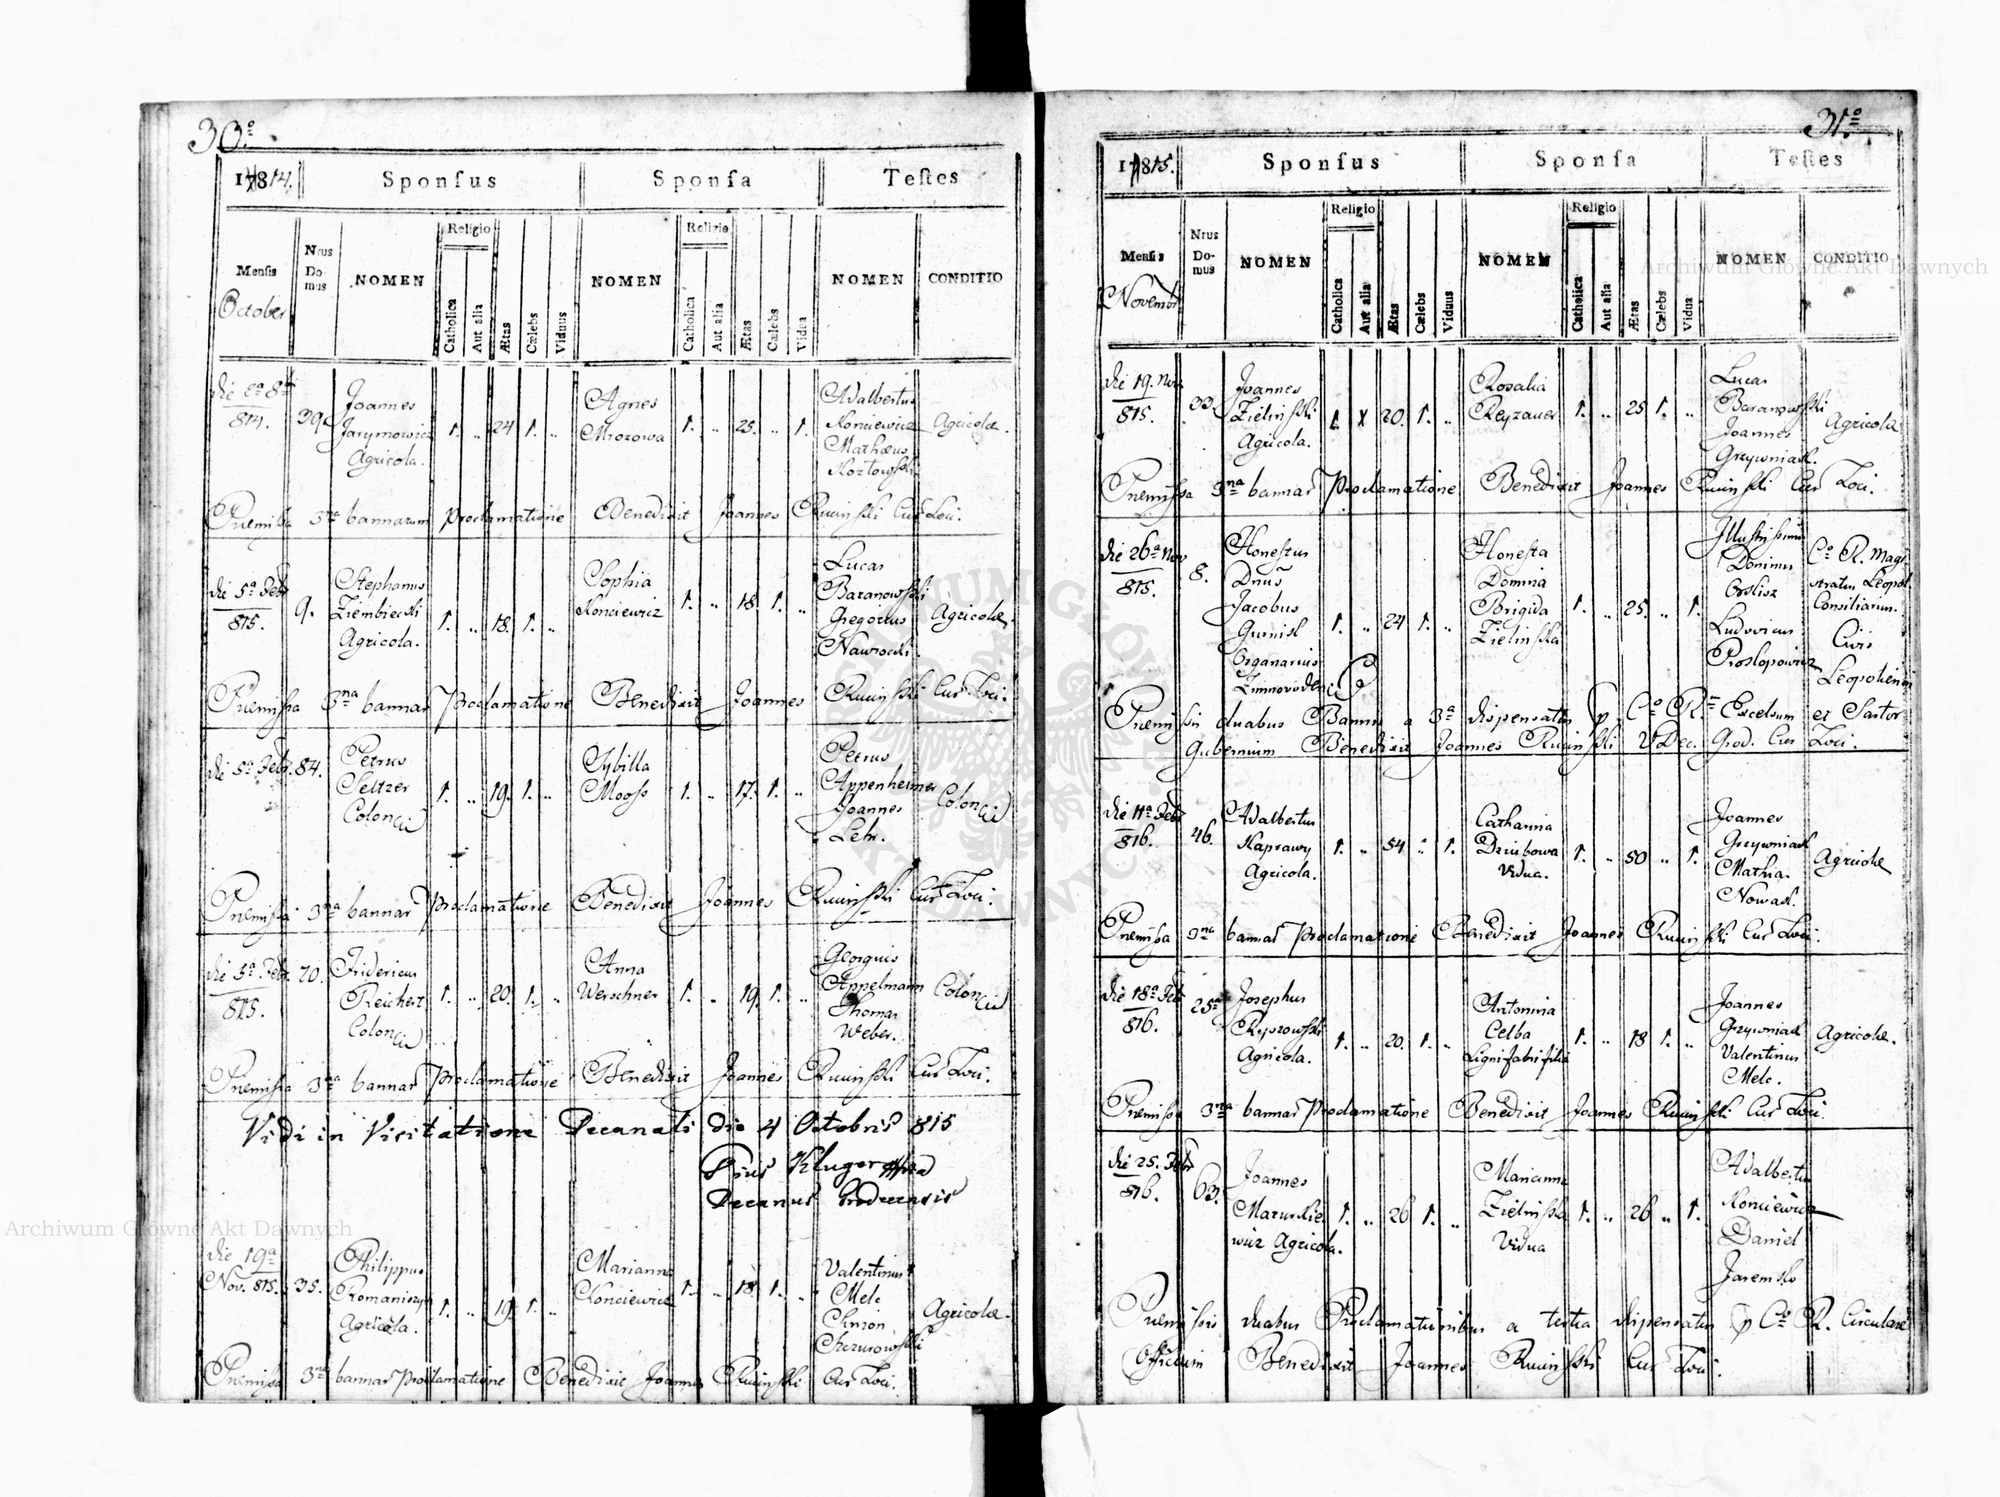 30.º
17814.
Sponſus
Sponſa
Teſtes
Menſis
October
Nrus Do- mus
NOMEN
Religio
Catholica
Aut alia
Ætas
Cælebs
Viduus
NOMEN
Religio
Catholica
Aut alia
Ætas
Cælebs
Vidua
NOMEN
CONDITIO
814. 39. Joannes Jarymowicz Agricola. 1. „ 24 1. „ Agnes Mrozowa 1. „ 25. „ 1. Adalbertus Konciewicz Mathæus Kozłowski Agricolæ.
Præmissa 3na bannarum Proclamatione Benedixit Joannes Ruciński Cur. Loci.
die 5a Febr 815. 9. Stephanus Ziembiecki Agricola. 1. „ 18. 1. „ Sophia Konciewicz 1. „ 18. 1. „ Lucas Baranowski Gregorius Nawrocki. Agricolæ
Præmissa 3na bannar Proclamatione Benedixit Joannes Ruciński Cur. Loci.
die 5a Febr. 84. Petrus Seltzer Colon 1. „ 19. 1. „ Sybilla Mooss 1. „ 17. 1. „ Petrus Appenheimer Joannes Lehr. Colon
Præmissa 3na bannar Proclamatione Benedixit Joannes Ruciński Cur Loci.
die 5a Febr. 815. 70. Fridericus Reichert Colon 1. „ 20. 1. „ Anna Werschner 1. „ 19. 1. „ Georgius Appelmann Thomas Weber. Colon
Præmissa 3na bannar Proclamatione Benedixit Joannes Ruciński Cur Loci.
Vidi in Visitatione Decanali die 4 Octobris 815
Pius Kluger
Decanus Grodecensis
die 19a Nov. 815. 35. Philippus Romaniszyn Agricola. 1. „ 19. 1. „ Marianna Konciewicz 1. „ 18. 1. „ Valentinus Melc Simon Agricolæ.
Præmissa 3na bannar Proclamatione Benedixit Joannes Ruciński Cur Loci.
31.º
17815.
Sponſus
Sponſa
Teſtes
Menſis
Novembr
Nrus Do- mus
NOMEN
Religio
Catholica
Aut alia
Ætas
Cælebs
Viduus
NOMEN
Religio
Catholica
Aut alia
Ætas
Cælebs
Vidua
NOMEN
CONDITIO
die 19. Nov 815. 33. Joannes Zieliński Agricola. 1. 20. 1. „ Rosalia Reyzauer 1. „ 25 1. „ Lucas Baranowski Joannes Grzywniak. Agricolæ
Præmissa 3na bannar Proclamatione Benedixit Joannes Ruciński Cur Loci.
die 26a Nov 815. 8. Honestus Dnus Jacobus Organarius 1. „ 24 1. „ Honesta Domina Brigida Zielińska 1. „ 25. „ 1. Illustrissimus Dominus Ludovicus Prokopowicz Cº R. Magistratus Leopol. Consiliarius. Civis Leopoliensis
Præmissis duabus Bannis a 3a dispensatis p Cº Rm Excelsum et Sartor
Gubernium Benedixit Joannes Ruciński VDec. Grod. Cur Loci.
die 11a Febr 816. 46. Adalbertus Kaprawy Agricola. 1. „ 54 „ 1. Catharina Dziubowa Vidua. 1. „ 50 „ 1. Joannes Grzywniak Mathia Nowak. Agricolæ
Præmissa 3na bannar Proclamatione Benedixit Joannes Ruciński Cur Loci.
die 18a Feb 816. 25. Josephus Ryszowski Agricola. 1. „ 20. 1. „ Antonina Celba Lignifabri filia 1. „ 18 1. „ Joannes Grzywniak Valentinus Melc. Agricolæ.
Præmissa 3na bannar Proclamatione Benedixit Joannes Ruciński Cur Loci.
die 25. Febr 816. 63. Joannes Mazurkiewicz Agricola. 1. „ 26 1. „ Marianna Zielińska Vidua 1. „ 26 „ 1. Adalbertus Konciewicz Daniel Jaremko
Præmissis duabus Proclamationibus a tertia dispensatis p Cº R. Circulare
Officium Benedixit Joannes Ruciński Cur Loci.
Archiwum Główne Akt Dawnych
Archiwum Główne Akt Dawnych